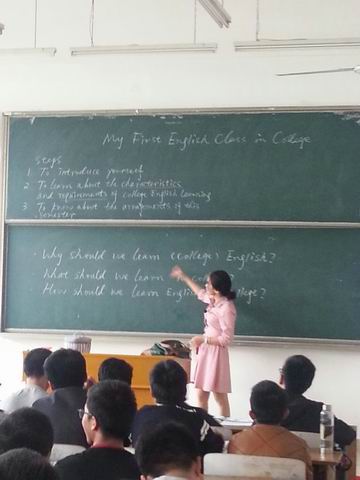 My First English Class in College
Steps
1. To introduce yourself
2. To learn about the characteristics
and requirements of college English learning
3. To know about the arrangements of this
semester
Why should we learn (College) English?
What should we learn
How should we learn English College?